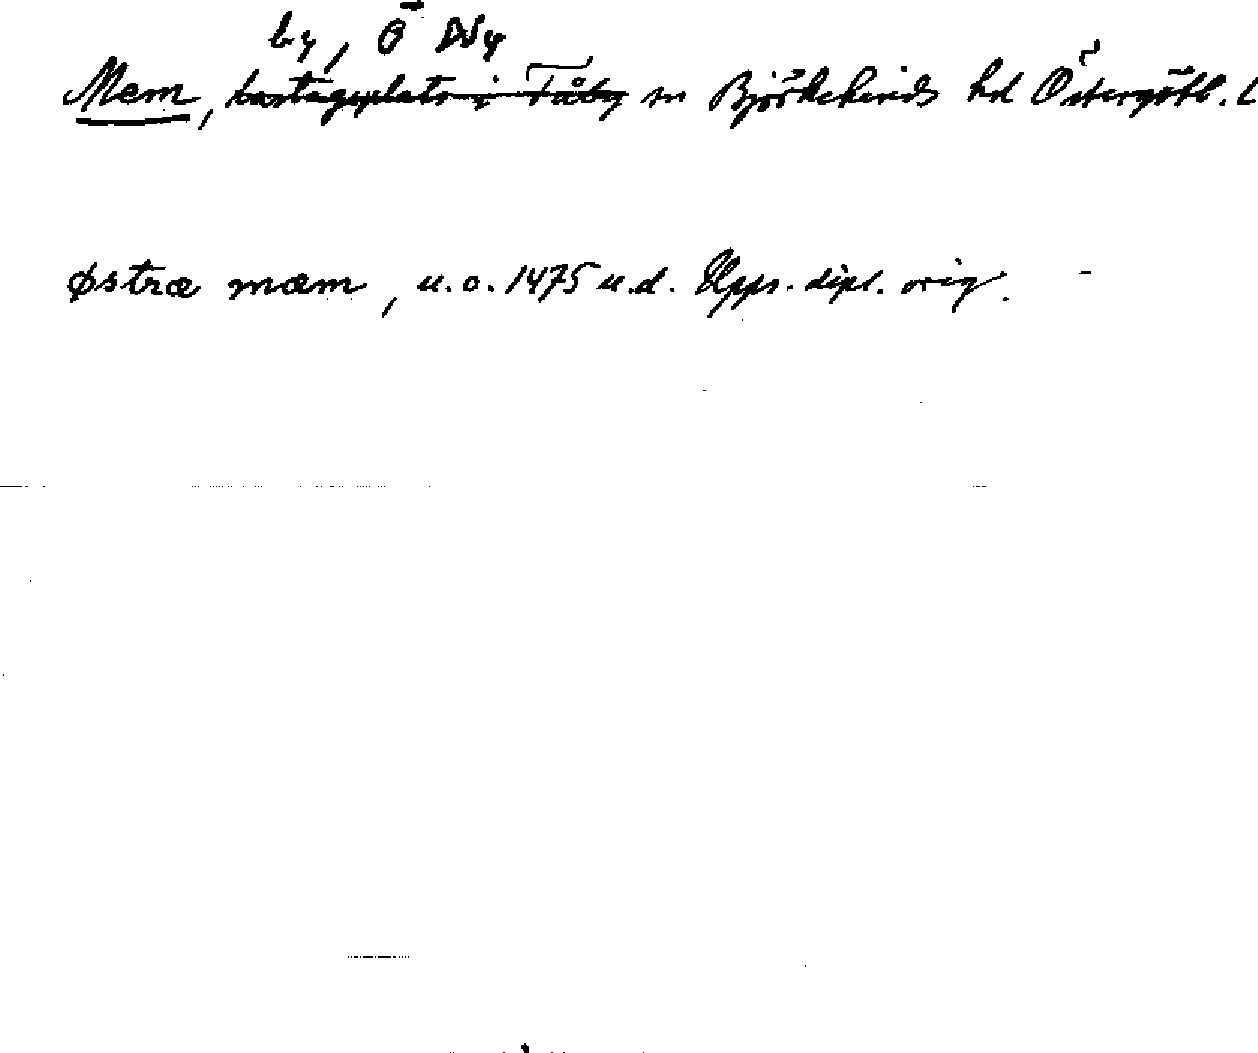 by, Ö Ny
Mem, lastageplats i Tåby sn Björkekinds hd Östergötl. l
østræ mæm, u.o. 1475 u.d. Upps. dipl. orig.